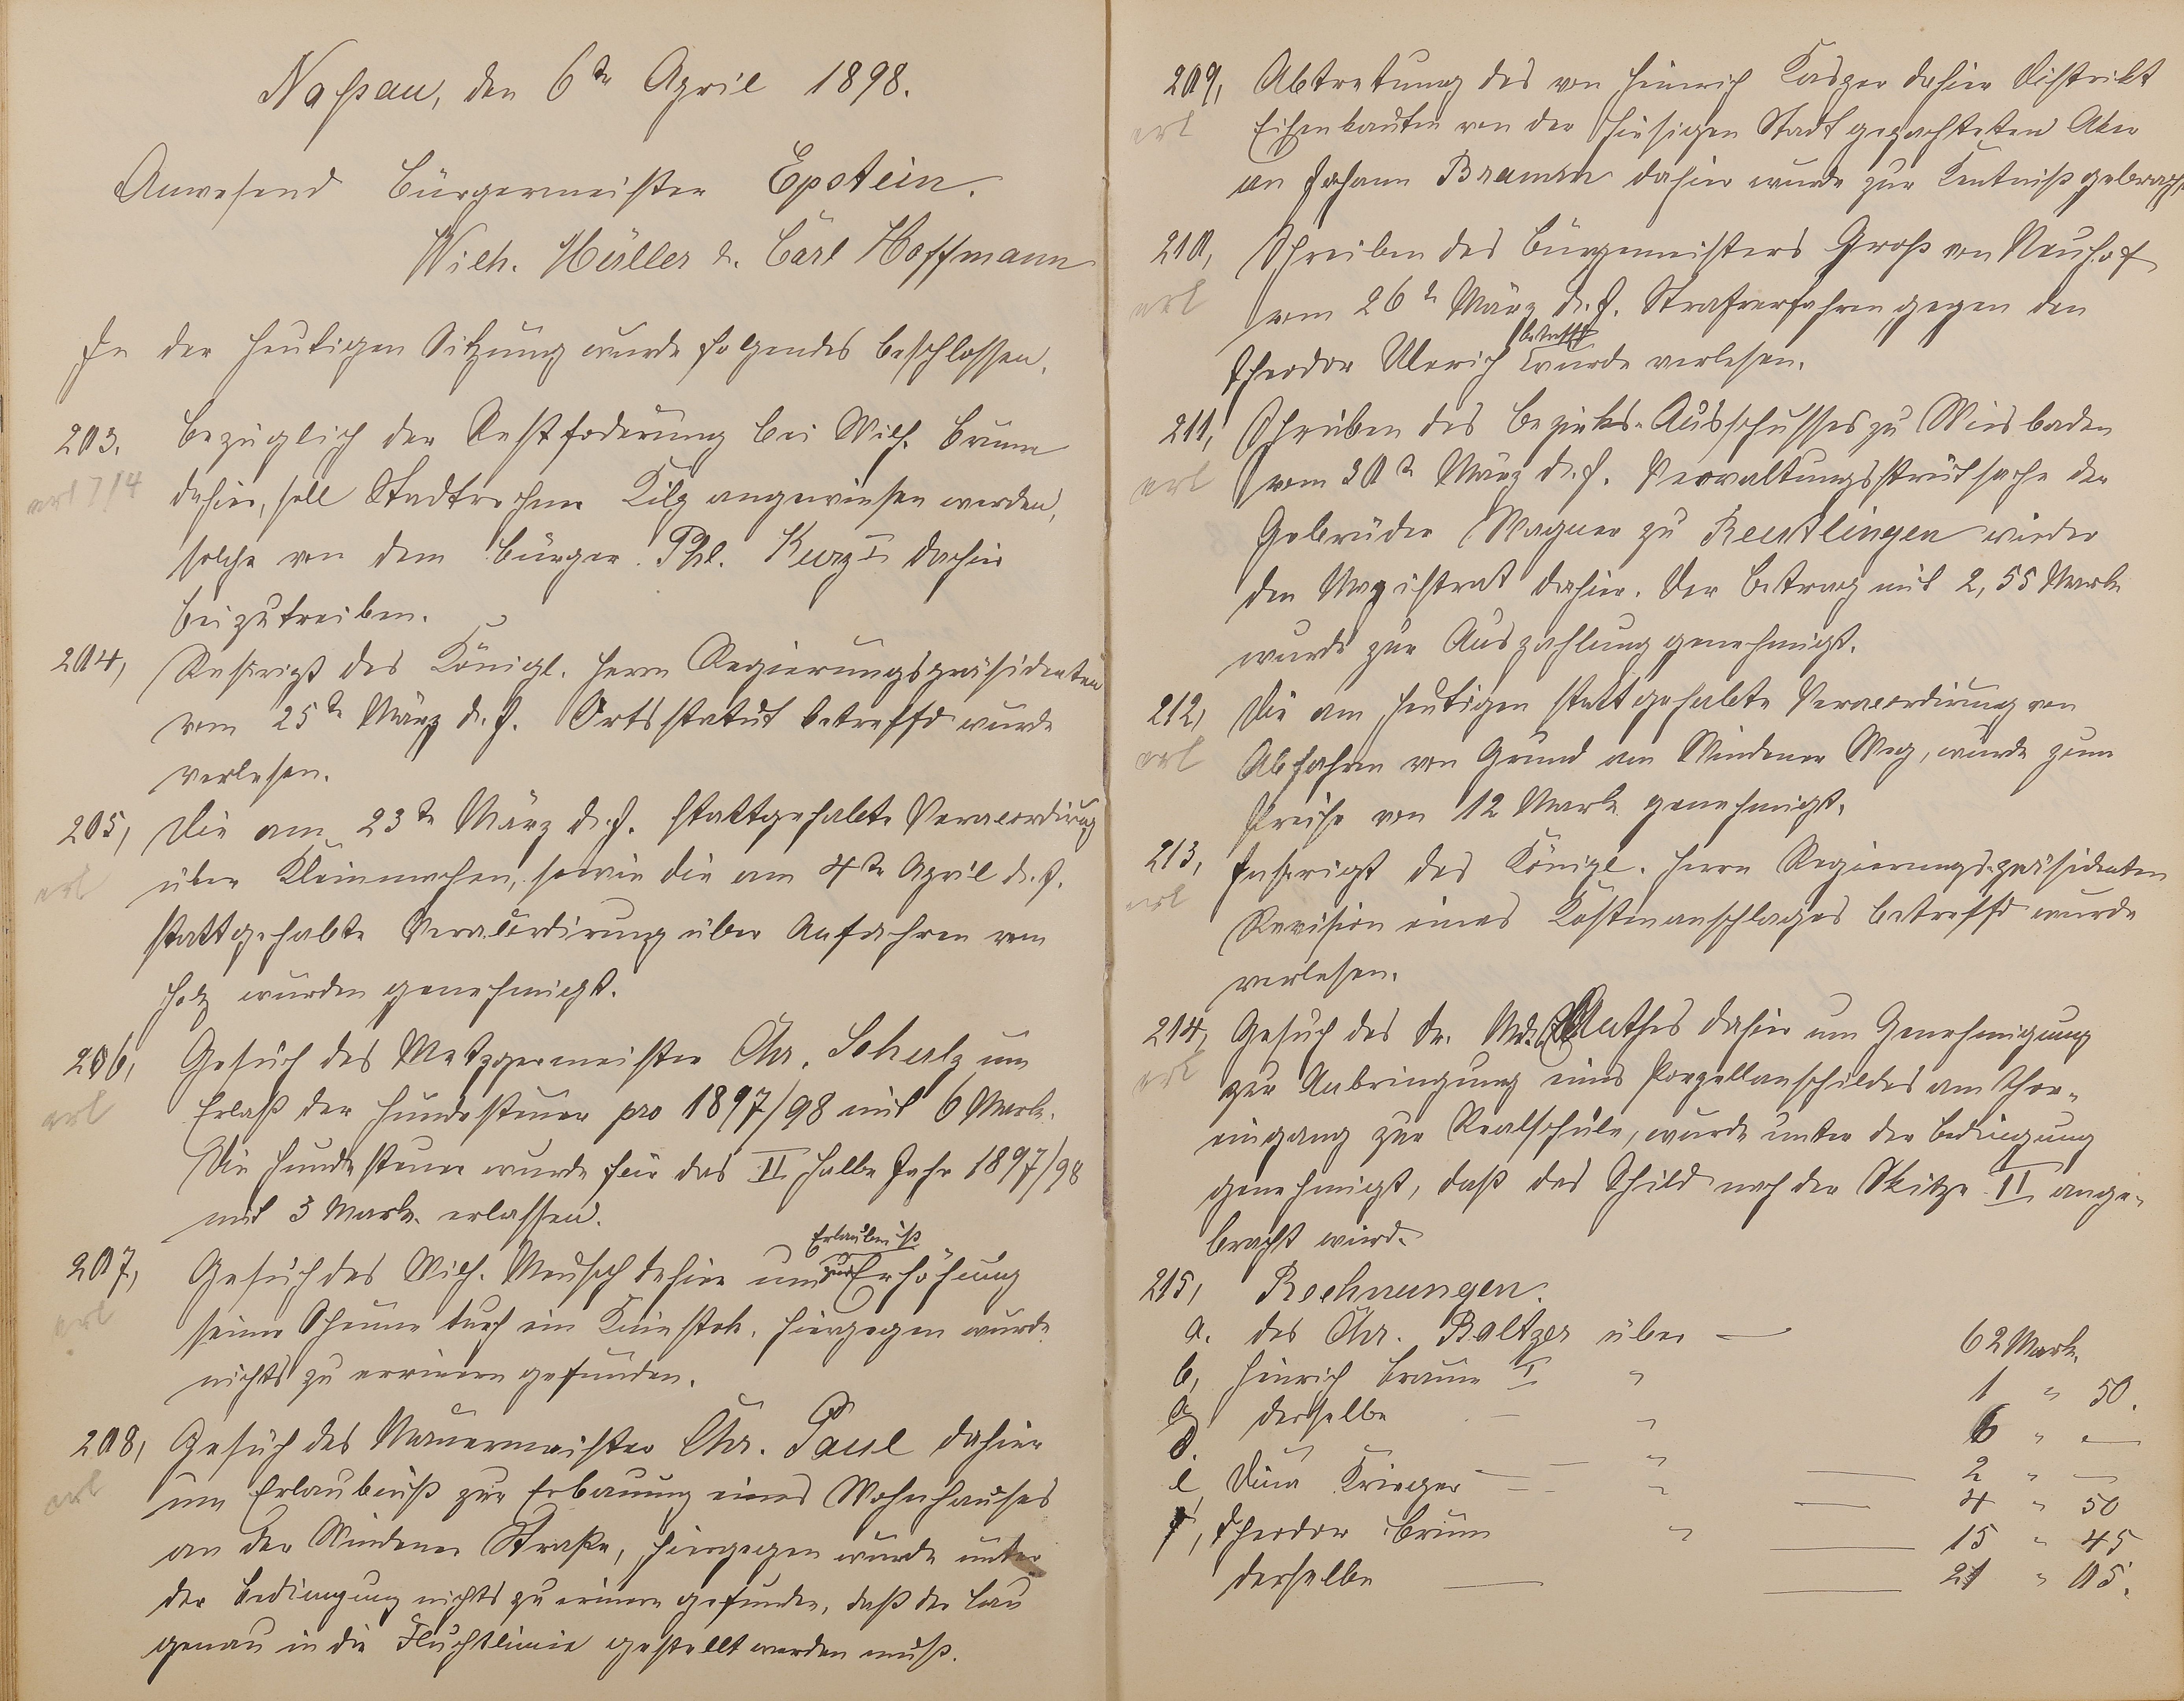 Naßau, den 6te April 1898.
Anwesend Bürgermeister Epstein.
Wilh. Müller u. Carl Hoffmann
In der heutigen Sitzung wurde folgendes beschlossen.
203. Bezüglich der Restforderung bei Wilh. Brum
erl 7/4 dahier, soll Stadtrechner Kilp angewiesen werden,
solche von dem Bürgen Phl. Kurz I dahier
beizutreiben.
204, Rescript des Königl. Herrn Regierungspräsidenten
vom 25te März d. J. Ortsstatut betreffd wurde
verlesen.
205, Die am 23te März d. J. stattgehabte Veraccordirung
erl über Kleinmachen, sowie die am 4te April d. J.
stattgehabte Veraccordirung über Anfahren vom
Holz wurden genehmigt.
206, Gesuch des Metzgermeister Chr. Schulz um
erl Erlaß der Hundesteuer pro 1897/98 mit 6 Mark.
Die Hundesteuer wurde für das II halbe Jahr 1897/98
mit 3 Mark. erlassen.
Erlaubniß
207, Gesuch des Wilh. Meusch dahier um zur Erhöhung
erl seiner Scheune durch ein Kniestok. Hiergegen wurde
nichts zu erinnern gefunden.
208, Gesuch des Mauermeister Chr. Paul dahier
erl um Erlaubniß zur Erbauung eines Wohnhauses
an der Windener Straße, hiergegen wurde unter
der Bedingung nichts zu erinern gefunden, daß der Bau
genau in die Fluchtlinie gestellt werden muß.
209, Abtretung des von Heinrich Kasper dahier Distrikt
erl von der hiesigen Stadt gepachteten Aker
an Johann dahier wurde zur Kentniß gebracht.
210, Schreiben des Bürgermeisters Groß von Neuhof
erl vom 26te März d. J. Strafverfahren gegen den
betreffd
Theodor Ulrich wurde verlesen.
211, Schreiben des Bezirks-Ausschusses zu Wiesbaden
erl vom 30te März d. J. Verwaltungsstreitsache der
Gebrüder Wagner zu Reutlingen wieder
den Magistrat dahier. Der Betrag mit 2,55 Mark
wurde zur Auszahlung genehmigt.
212, Die am heutigen stattgehabte Veraccordirung von
erl Abfahren von Grund am Windener Weg, wurde zum
Preise von 12 Mark genehmigt.
213, Inscript des Königl. Herrn Regierungspräsidenten
erl Revision eines Kostenanschlages betreffd wurde
verlesen.
214, Gesuch des Dr. Med. Mathes dahier um Genehmigung
erl zur Anbringung eines Porzellanschildes am Thor-
eingang zur Realschule, wurde unter der Bedingung
genehmigt, daß das Schild nach der Skitze II ange-
bracht wird.
215, Rechnungen.
a. des Chr. Baltzer über — 62 Mark.
b, Heinrich Braun I " 1 " 50.
c, derselbe — " 6 " —
d. " 2 " —
e Dina Krieger — " — 4 " 50
f, Theodor Brum " — 15 " 45
derselbe — — 21 " 05.